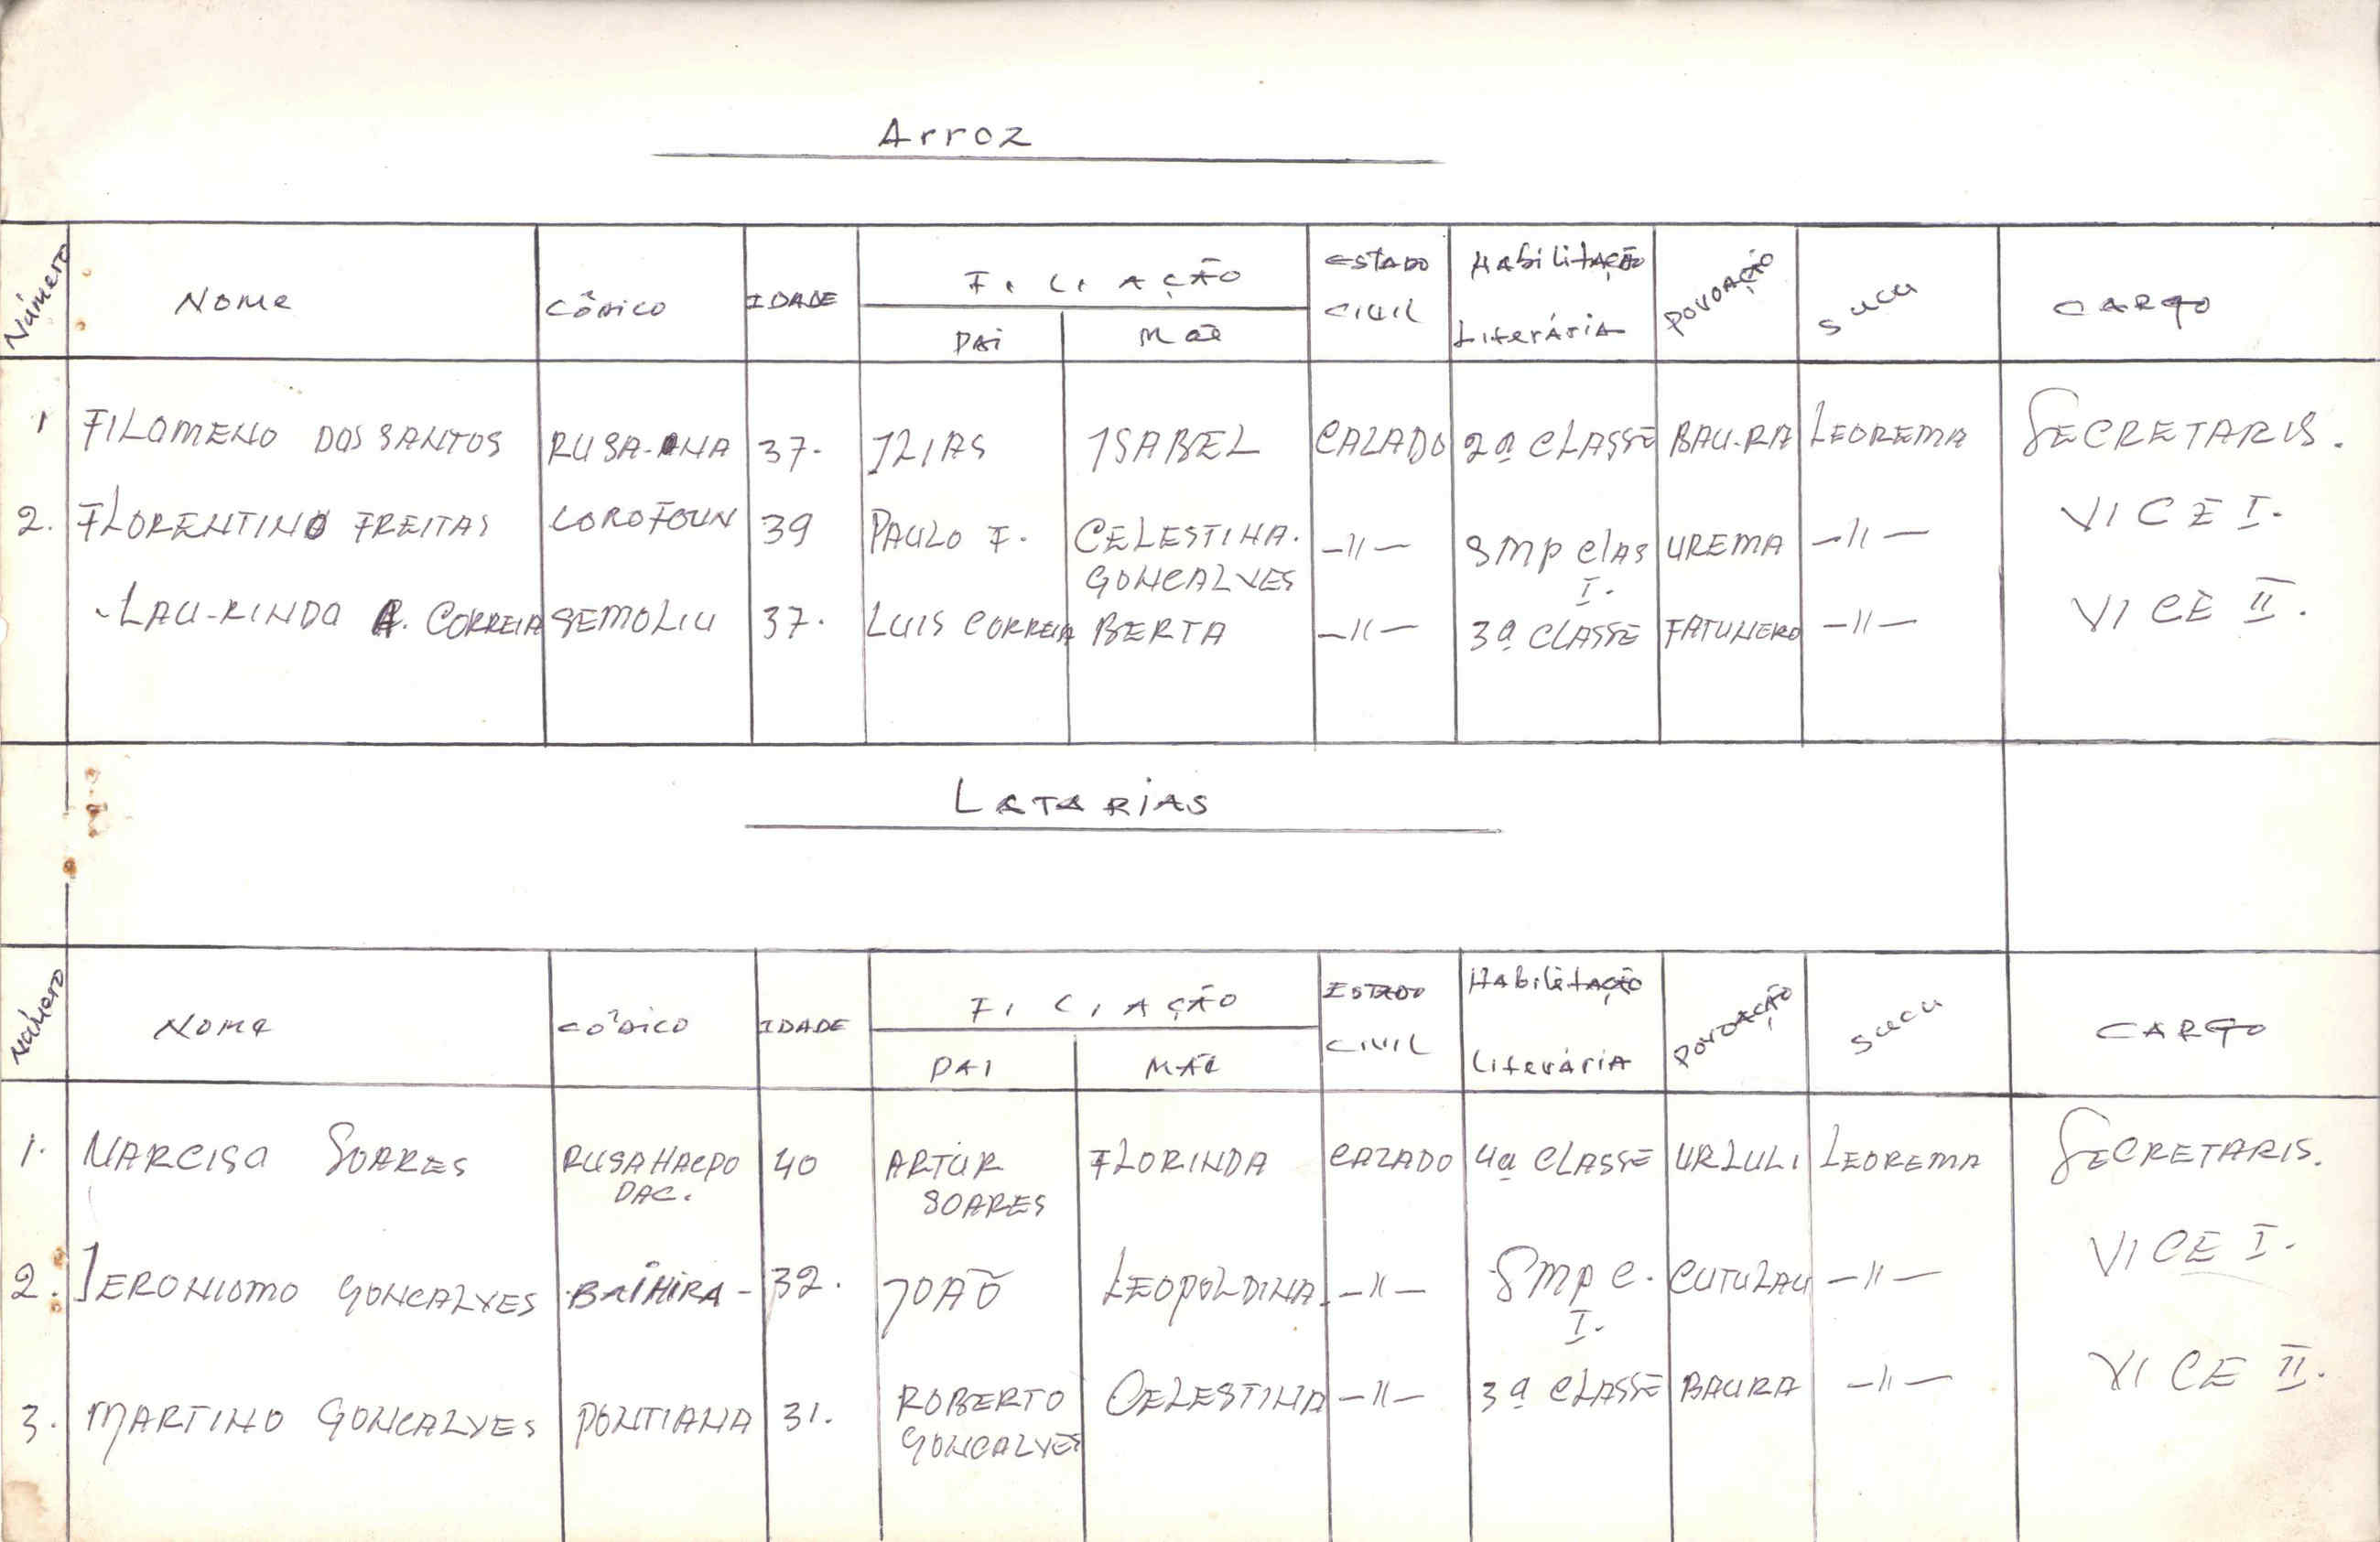 Arroz
Número Nome Côdico IDADE FiLiAÇÃO ESTADO CIVIL Habilitação Literária POVOAÇÃO Sucu CARGO
PAi Mãe
1 FILOMENO DOS SANTOS RUSA-ANA 37. ILIAS ISABEL CAZADO 2ª CLASSE BAU-RA LEOREMA SECRETARIS.
2. FLORENTINO FREITAS LOROFOUN 39 PAULO F. CELESTINA. GONCALVES —〃— SMP CLAS I. UREMA —〃— VICE I.
LAU-RINDO A. CORREIA SEMOLIU 37. LUIS CORREIA BERTA —〃— 3ª CLASSE FATUNERO —〃— VICE II.
LATARIAS
Número Nome CÓDICO IDADE FiLiAÇÃO ESTADO CIVIL Habilitação Literária POVOAÇÃO Sucu CARGO
PAI MÃE
1. NARCISO SOARES RUSA HACPO DAC. 40 ARTUR SOARES FLORINDA CAZADO 4ª CLASSE URLULI LEOREMA SECRETARIS.
2. JERONIOMO GONCALVES BAIHIRA- 32. JOAÕ LEOPOLDINA. —〃— SMP C. I. CUTULAU —〃— VICE I.
3. MARTINO GONCALVES PONTIANA 31. ROBERTO GONCALVES CELESTINA —〃— 3ª CLASSE BAURA —〃— VICE II.